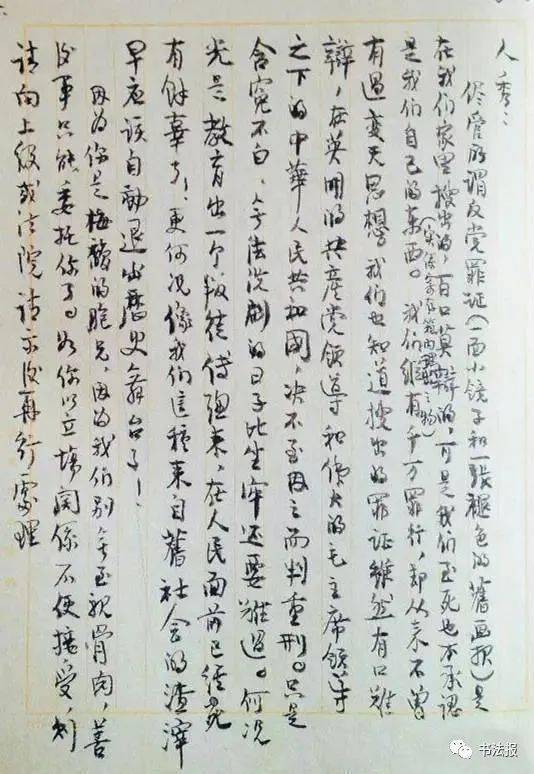 人秀：
儘管所謂反党罪证（一面小镜子和一張褪色的舊画报）是
在我们家里搜出的，百口莫辯的，可是我们至死也不承认
是我们自己的东西（实係寄存箱内理出之物）。我们纵有千万罪行，却从来不曾
有过变天思想。我们也知道搜出的罪证雖然有口难
辯，在英明的共產党领導和偉大的毛主席领導
之下的中華人民共和國，决不至因之而判重刑。只是
含冤不白，无法洗刷的日子比坐牢还要难过。何况
光是教育出一个叛徒傅聪来，在人民面前已经死
有餘辜了！更何况像我们这种来自舊社会的渣滓
早应该自動退出歷史舞台了！
因为你是梅馥的胞兄，因为我们别无至親骨肉，善
後事只能委托你了。如你以立場関係不便接受，则
请向上级或法院请示後再行處理
书法报